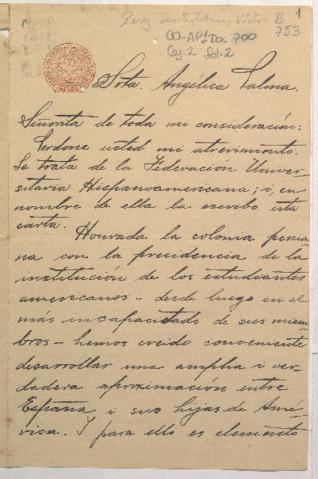 Perez Santisteban, Victor B
1
753
CO-AP1 Doc 700
Caj-2 Fol-2
Srta. Angélica Palma.
Señorita de toda mi consideración:
Perdone usted mi atrevimiento.
Se trata de la Federación Univer-
sitaria Hispanoamericana; i, en
nombre de ella la escribo esta
carta.
Honrada la colonia perua
na con la presidencia de la
institución de los estudiantes
americanos - desde luego en el
más incapacitado de sus miem
bros - hemos creido conveniente
desarrollar una amplia i ver-
dadera aproximación entre
España i sus hijas de Amé-
rica. Y para ello es elemento